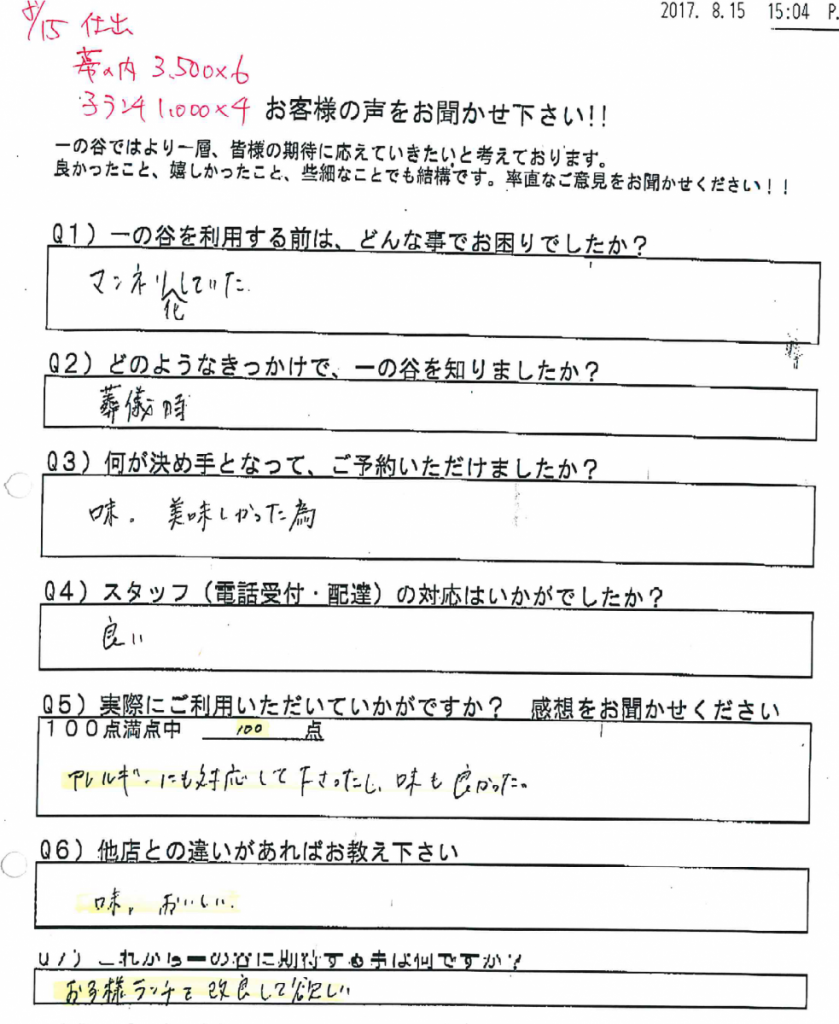 2017. 8.15 15:04 P.
8/15 仕出
幕の内 3,500×6
子ランチ 1,000×4
お客様の声をお聞かせ下さい!!
一の谷ではより一層、皆様の期待に応えていきたいと考えております。
良かったこと、嬉しかったこと、些細なことでも結構です。率直なご意見をお聞かせください!!
Q1)一の谷を利用する前は、どんな事でお困りでしたか?
マンネリ化していた.
Q2)どのようなきっかけで、一の谷を知りましたか?
葬儀時
Q3)何が決め手となって、ご予約いただけましたか?
味。美味しかった為
Q4)スタッフ(電話受付・配達)の対応はいかがでしたか?
良い
Q5)実際にご利用いただいていかがですか? 感想をお聞かせください
100点満点中 100 点
アレルギーにも対応して下さったし、味も良かった。
Q6)他店との違いがあればお教え下さい
味。おいしい.
Q7)これから一の谷に期待する事は何ですか?
お子様ランチを改良して欲しい